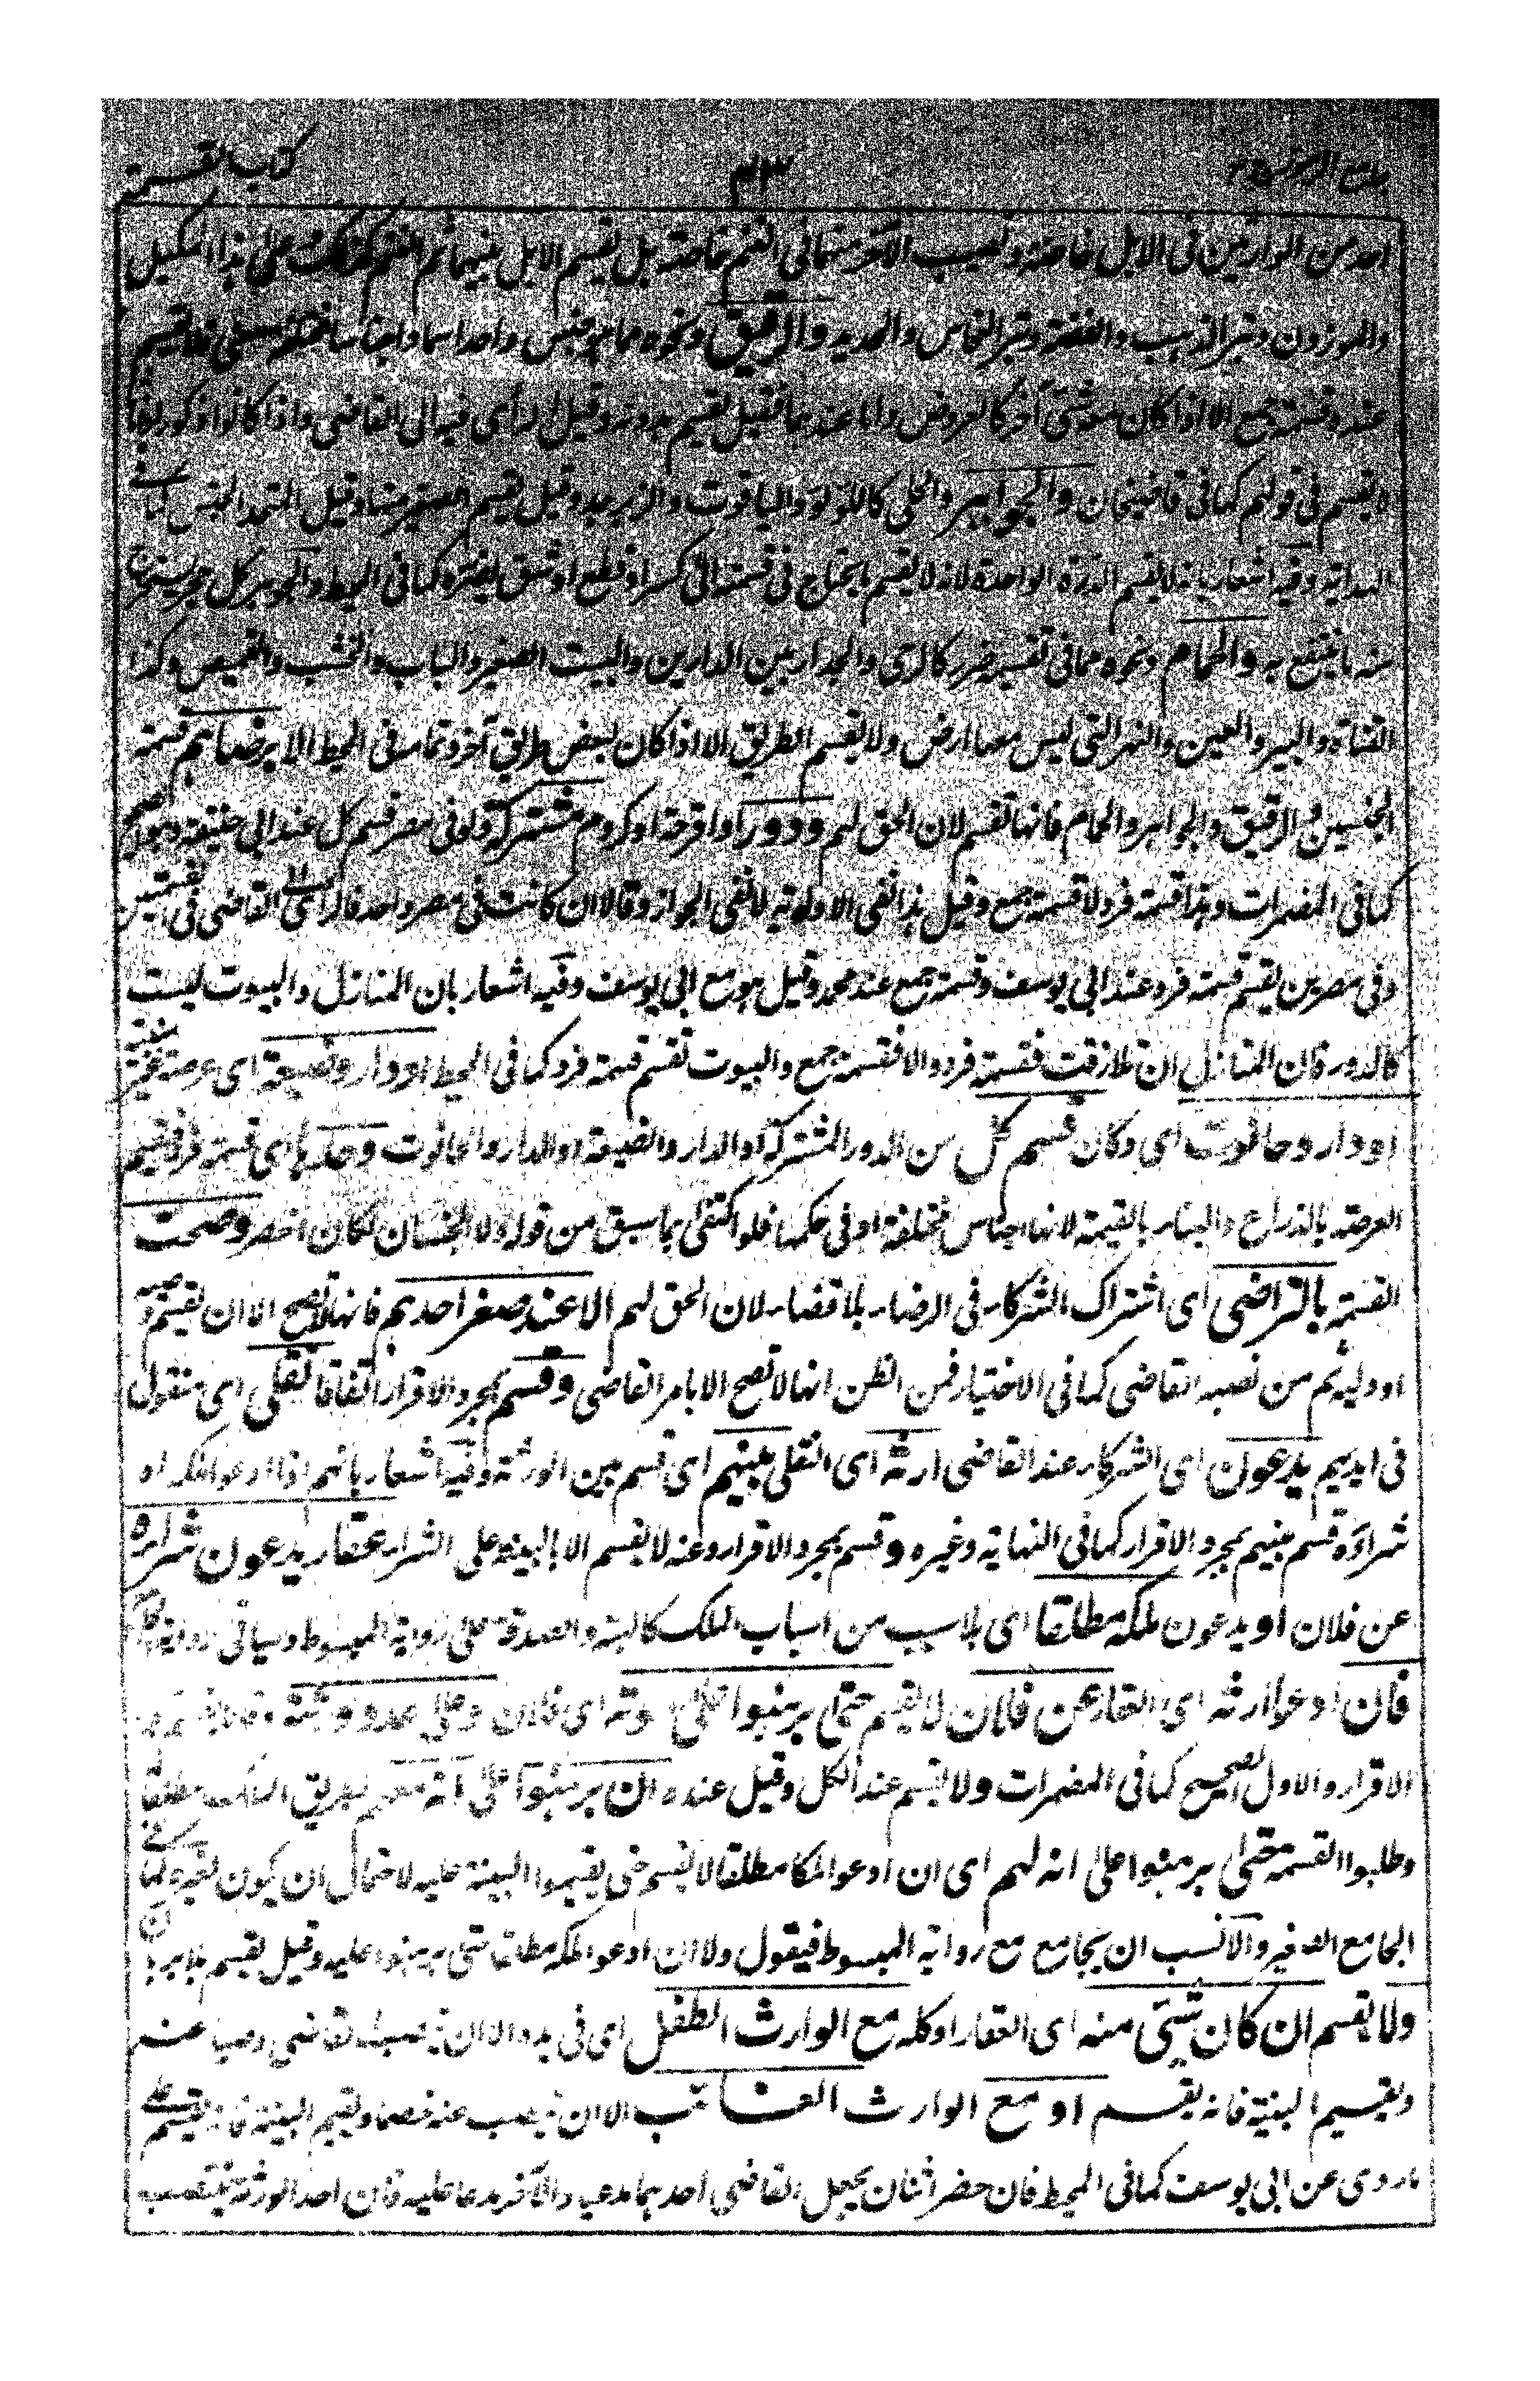 كتاب القسمة
احد من الوارثين فى الابل خاصة ونصيب الآخر منهما فى الغنم خاصة بل يقسم الابل بينهما ثم الغنم كذلك وعلى هذا المكيل
والموزون وتبر الذهب والفضة وتبر النحاس والحديد والرقيق ونحوه مما هو جنس واحد اسما واجناسا مختلفة معنى فلا يقسم
عنده قسمة جمع الا اذا كان معه شئ آخر كالعروض واما عندهما فقيل يقسم بدونه وقيل الرأى فيه الى القاضى واذا كانوا ذكورا واناثا
لا يقسم فى قولهم كما فى قاضيخان والجواهر والحلى كاللؤلؤ والياقوت والزبرجد وقيل يقسم الصغير منها وقيل المتحد الجنس كما فى
الهداية وفيه اشعار بانه لا يقسم الدرة الواحدة لانه لا يقسم ما يحتاج فى قسمته الى كسر او قطع او شق يضره كما فى المحيط والجوهر كل حجر يستخرج
منه ما ينتفع به والحمام ونحوه مما فى تقسيمه ضرر كالرحى والجدار بين الدارين والبيت الصغير والباب والخشب والقميص وكذا
القناة والبير والعين والنهر التى ليس معها ارض ولا يقسم الطريق الا اذا كان لبعض طريق آخر وتمامه فى المحيط الا برضاهم قسمة
الجنسين والرقيق والجواهر والحمام فانها تقسم لان الحق لهم ودور او اقرحة او كروم مشتركة ولو فى مصر قسم كل عند ابى حنيفة وهو الصحيح
كما فى المضمرات وهذا قسمة فرد لا قسمة جمع وقيل هذا نفى الاولوية لا نفى الجواز وقالا ان كانت فى مصر واحد فالرأى الى القاضى فى القسمتين
وفى مصرين يقسم قسمة فرد عند ابى يوسف وقسمة جمع عند محمد وقيل هو مع ابى يوسف وفيه اشعار بان المنازل والبيوت ليست
كالدور فان المنازل ان تلازقت فقسمة فرد والا فقسمة جمع والبيوت تقسم قسمة فرد كما فى المحيط او دار وضيعة اى عرصة غير مبنية
او دار وحانوت اى دكان قسم كل من الدور المشتركة او الدار والضيعة او الدار والحانوت وحدها اى قسمة فرد فيقسم
العرصة بالذراع والبناء بالقيمة لانها اجناس مختلفة او فى حكمها فلو اكتفى بما سبق من قوله ولا الجنسان لكان اخصر وصحت
القسمة بالتراضى اى اشتراك الشركاء فى الرضاء بلا قضاء لان الحق لهم الا عند صغر احدهم فانها لا تصح الا ان يقسم وصيه
او وليه ثم من نصبه القاضى كما فى الاختيار فمن الظن انها لا تصح الا بامر القاضى وقسم بمجرد الاقرار اتفاقا نقلى اى منقول
فى ايديهم يدعون اى الشركاء عند القاضى ارثه اى النقلى بينهم اى قسم بين الورثة وفيه اشعار بانهم اذا ادعوا ملكه او
شراؤه قسم بينهم بمجرد الاقرار كما فى النهاية وغيره وقسم بمجرد الاقرار وعنه لا يقسم الا بالبينة على الشراء عقار يدعون شراءه
عن فلان او يدعون ملكه مطلقا اى بلا سبب من اسباب الملك كالهبة والصدقة على رواية المبسوط وسياتى رواية الجامع
فان ادعوا ارثه اى العقار عن فلان لا يقسم حتى يبرهنوا على موته اى فلان وعلى عدد ورثته وقالا يقسم
الاقرار والاول الصحيح كما فى المضمرات ولا يقسم عند الكل وقيل عنده ان برهنوا على انه معهم بطريق الملك مطلقا
وطلبوا القسمة حتى يبرهنوا على انه لهم اى ان ادعوا ملكا مطلقا لا يقسم حتى يقيموا البينة عليه لاحتمال ان يكون لغيره كما فى
الجامع الصغير والانسب ان يجامع مع رواية المبسوط فيقول ولا ان ادعوا ملكه مطلقا حتى يبرهنوا عليه وقيل يقسم بلا برهان
ولا يقسم ان كان شئ منه اى العقار او كله مع الوارث الطفل اى فى يده الا ان نصب القاضى وصيا عنه
ويقيم البينة فانه يقسم او مع الوارث الغائب الا ان ينصب عنه خصما ويقيم البينة فانه يقسم على
ما روى عن ابى يوسف كما فى المحيط فان حضر اثنان يجعل القاضى احدهما مدعيا والآخر مدعا عليه فان احد الورثة ينتصب